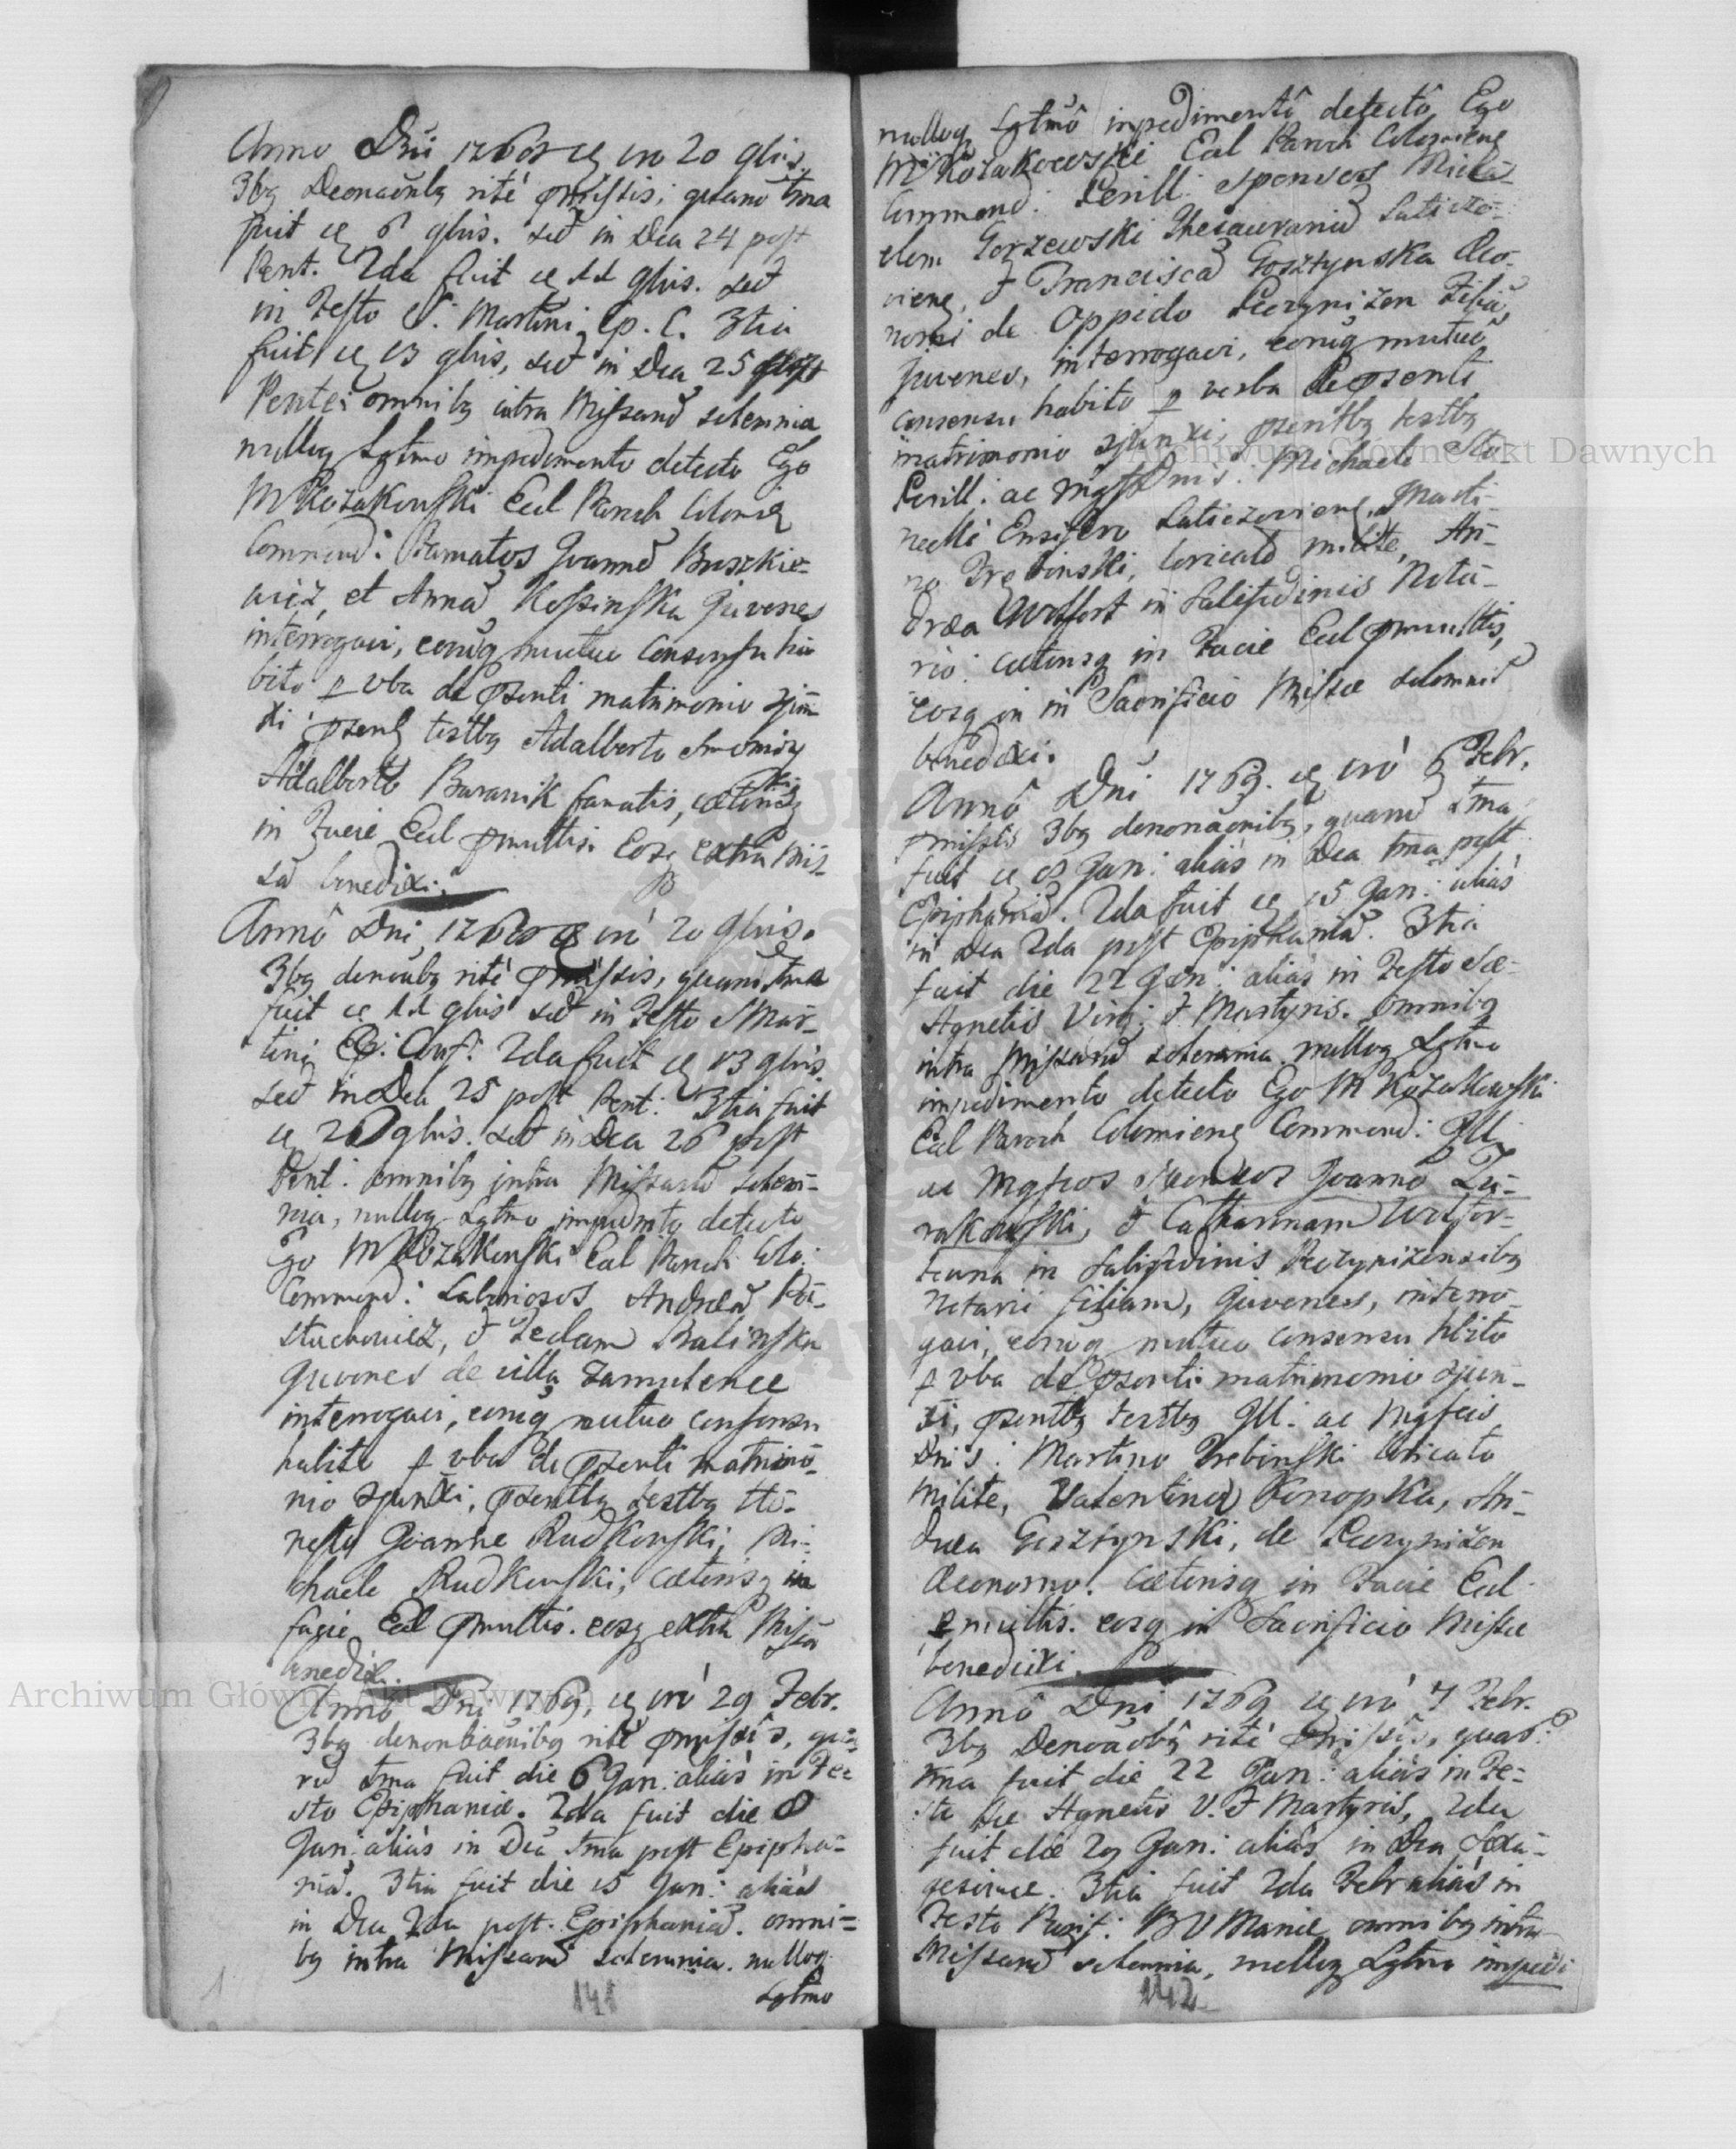 Anno Dni 1768 vo 20 9bris
3bq Denõaõnbq rité pmissis, quarũ 1ma
fuit 6 9bris. sed in Dca 24 post
Pent. 2da fuit 11 9bris. sed
in Festo S. Martini Ep. C. 3tia
fuit 13 9bris, sed in Dca 25 post
Pente: omnibq intra Missarũ solemnia
nulloq Lgtmo impedimento detecto Ego
M Kozakowski Eccl Paroch Colomien
Commend: Famatos Joannẽ Buszkie-
wicz, et Annã Kossinska Juvenes
interrogavi, eorũq mutuo Consensu ha
bito p vba de psenti matrimonio cjun-
xi psen testbq Adalberto
Adalberto Baranik famatis, cæterisq
in Facie Eccl pmultis. Eosq extra Mis-
sã benedixi.
Annô Dni 1768 vo 20 9bris.
3bq denõnbq rité pmissis, quarũ 1ma
fuit 11 9bris sed in Festo S Mar-
tini Ep: Conf: 2da fuit 13 9bris
sed in Dca 25 post Pent: 3tia fuit
20 9bris. sed in Dca 26 post
Pent: omnibq intra Missarũ solem-
nia, nulloq Lgtmo impedmto detecto
Ego M Kozakowski Eccl Paroch Colo:
Commend: Laboriosos Andreã
stuchowicz, & Teclam Balinska
Juvenes de villa Zamulence
interrogavi, eorũq mutuo consensu
habito p vba de psenti matrimo-
nio cjunxi, psentbq testbq Ho-
nestis Joanne Rudkowski, Mi-
chaele Rudkowski, cæterisq in
facie Eccl pmultis. eosq extra Missã
benedixi.
Annô Dni 1769, vo 29 Febr.
3bq denontiaõnibq rité pmissis, qua
rũ 1ma fuit die 6 Jan: aliás in Fe-
sto Epiphaniæ. 2da fuit die 8
Jan: aliás in Dca 1ma post Epipha-
niã. 3tia fuit die 15 Jan: aliás
in Dca 2da post. Epiphaniã. omni-
bq intra Missarũ solemnia. nulloq
Lgtmo
141
nulloq Lgtmô impedimentô detectô Ego
M Kozakowski Eccl Paroch Colomien
Commend: Perill: Sponsos Micha-
elem Gorzewski Thesaurariũ Laticzo-
vien, & Franciscã Gosztynska Oeco-
nomi de Oppido Peczynizen Filiã,
juvenes, interrogavi, eorũq mutuo
consensu habito p verba de psenti
matrimonio cjunxi, psentbq testbq
Perill: ac Mgf Dnis: Michaele Sto-
necki Ensifero Laticzovien, Marti-
no Trębinski, loricato milite, An-
drea Wolfort in Salisfodinis Nota-
rio: cæterisq in Facie Eccl pmultis,
eosq in Sacrificio Missæ solemnis
benedixi.
Annô Dni 1769. vó 6 Febr.
pmissis 3bq denonaõnibq, quarũ 1ma
fuit 8 Jan: aliás in Dca 1ma post
Epiphaniã. 2da fuit 15 Jan: aliás
in Dca 2da post Epiphaniã. 3tia
fuit die 22 Jan: aliás in Festo Stæ
Agnetis Virg: & Martyris. omnibq
intra Missarũ solemnia nulloq Lgtmo
impedimento detecto Ego M Kozakowski
Eccl Paroch Colomien Commend: Ill:
ac Mgfcos Sponsos Joannẽ Zu-
rakowski, & Catharinam Wolfor-
towna in Salisfodinis Peczynizensibq
Notarii filiam, Juvenes, interro-
gavi, eorũq mutuo consensu hbito
p vba de psenti matrimonio cjun-
xi, psentbq testbq Ill: ac Mgfcis
Dnis: Martino Trebinski loricato
Milite, Valentino Konopka, An-
drea Gosztynski, de Peczynizen
Œconomo. cæterisq in Facie Eccl
pmultis. eosq in Sacrificio Missæ
benedixi.
Annô Dni 1769 vó 7 Febr.
3bq Denõaõbq rité pmissis, quar
1ma fuit die 22 Jan: aliás in Fe-
sto Stæ Agnetis V. & Martyris, 2da
fuit die 29 Jan: aliás in Dca Sexa-
gesimæ. 3tia fuit 2da Febr aliás in
Festo Purif: BV Mariæ omnibq intra
Missarũ solemnia, nulloq Lgtmo impedi
142
Archiwum Główne Akt Dawnych
Archiwum Główne Akt Dawnych